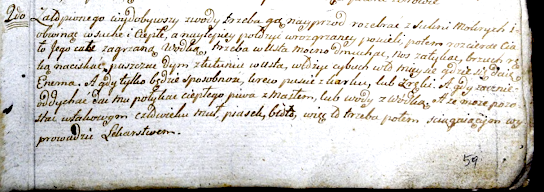 2do Zalanionego wydobywszy z wody trzeba go nayprzod rozebrac z sukni mokrych i
obwinąc w suche i ciepłe, a naylepiey położyc w rozgrzaney poscieli, potem rozcierac Cia-
ło Jego całe zagrzaną Wodką, trzeba w Usta mocno dmuchac, nos zatykac, brzuch rę-
ką naciskac, puszczac dym z tutuniu w Usta, włożyc cybuch w tył
Enema. A gdy tylko będzie sposobnosc, krew puscic z karku, lub Zyły. A gdy zacznie
oddychac dac mu połykac ciepłego piwa z masłem, lub wody z wodką. A że może pozo-
stac w takowym człowieku muł, piasek, błoto, więc to trzeba potem wy-
prowadzic Lekarstwem.
59